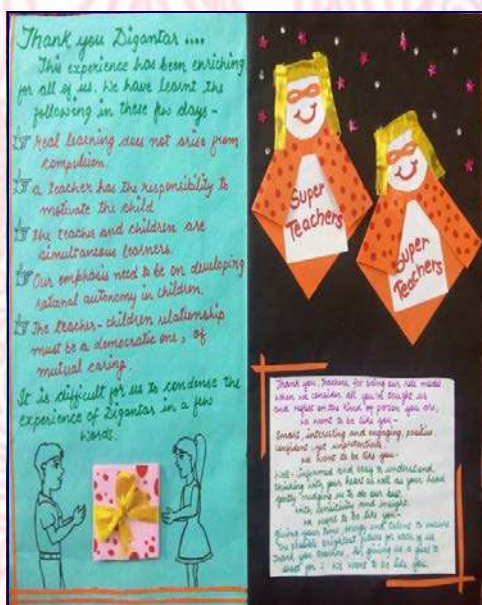 Thank you Digantar ....
This experience has been enriching
for all of us. We have learnt the
following in these few days -
real learning does not arise from
compulsion.
a teacher has the responsibility to
motivate the child
the teacher and children are
simultaneous learners.
Our emphasis need to be on developing
rational autonomy in children.
The teacher - children relationship
must be a democratic one, of
mutual caring.
It is difficult for us to condense the
experience of Digantar in a few
words.
Super
Teachers
Super
Teachers
Thank you, teachers, for being our role model
when we consider all you've taught us
and reflect on the kind of person you are,
we want to be like you -
Smart, interesting and engaging, positive
confident yet unpretentious.
we want to be like you -
Well-informed and easy to understand
thinking with your heart as well as your head
gently nudging us to do our best
with sensitivity and insight.
we want to be like you -
giving your time, energy and talent to ensure
the possible brightest future for each of us
Thank you teachers, for giving us a goal to
shoot for : We want to be like you.